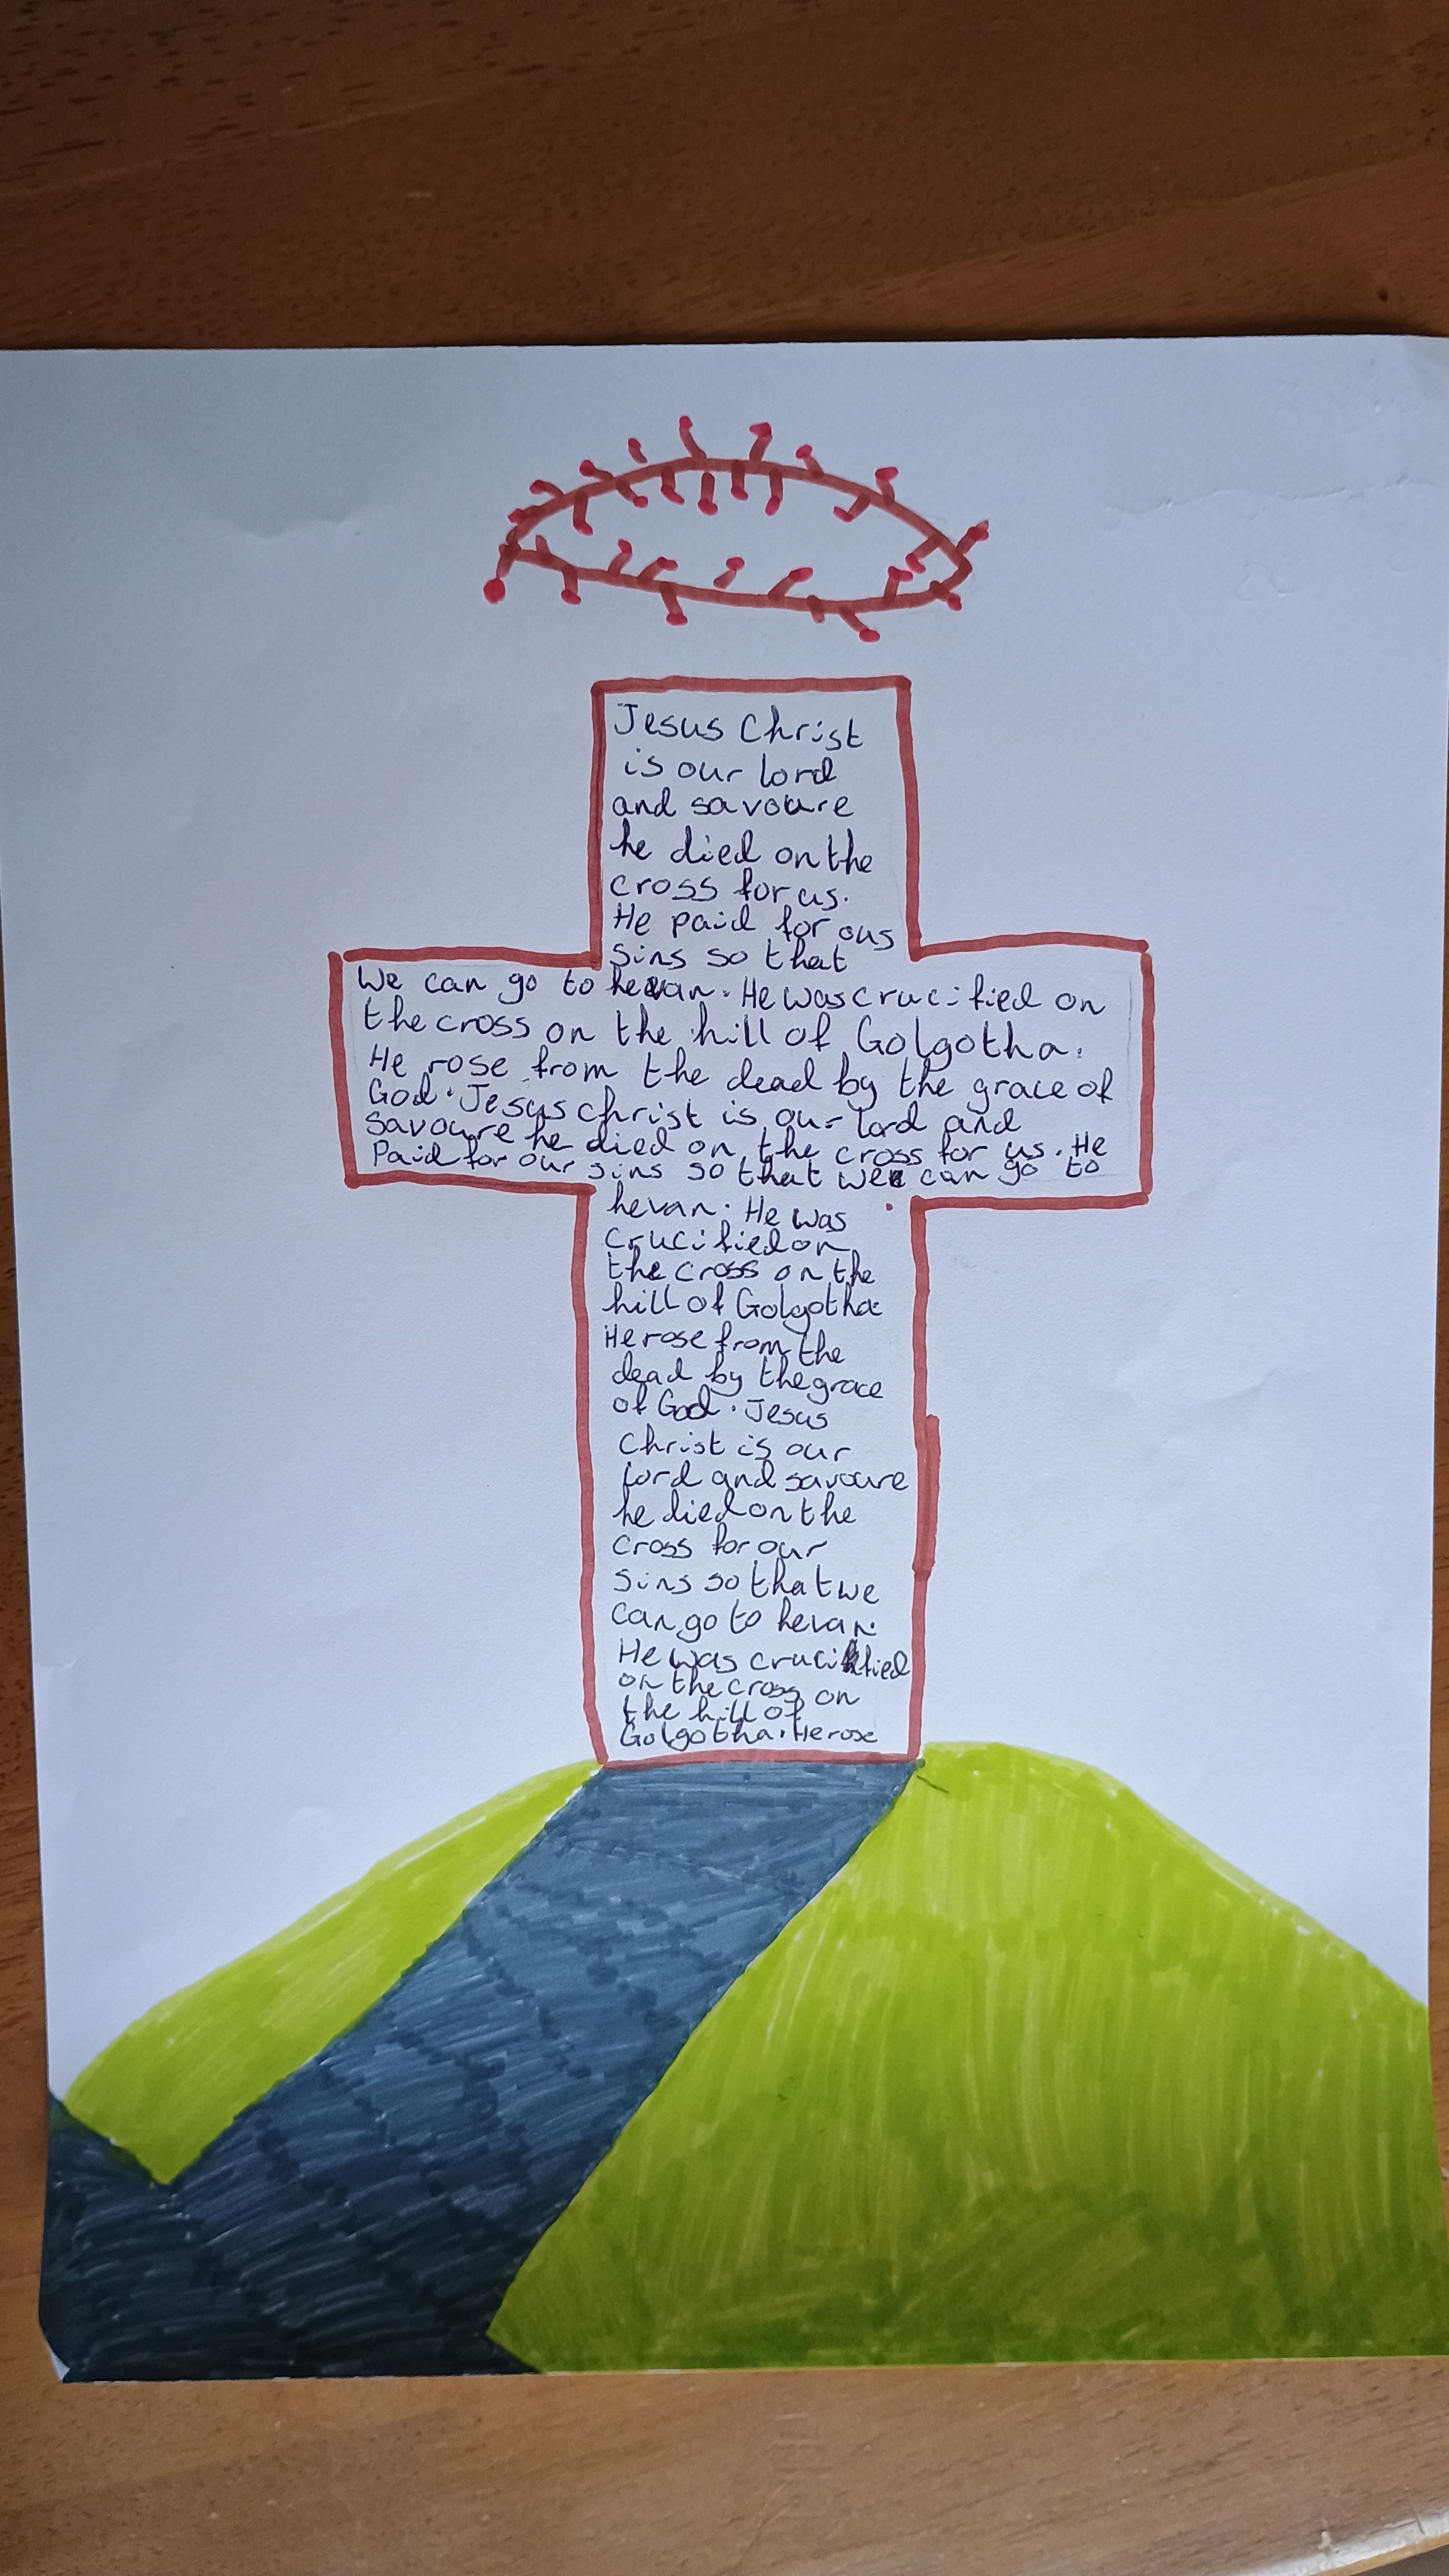 Jesus Christ
is our lord
and savoure
he died on the
cross for us.
He paid for ous
sins so that
We can go to hevan. He was crucified on
the cross on the hill of Golgotha.
He rose from the dead by the grace of
God. Jesus christ is our lord and
savoure he died on the cross for us. He
Paid for our sins so that we can go to
hevan. He was
crucified on
the cross on the
hill of Golgotha.
He rose from the
dead by the grace
of God. Jesus
Christ is our
lord and savoure
he died on the
cross for our
sins so that we
can go to hevan.
He was crucified
on the cross on
the hill of
Golgotha. He rose